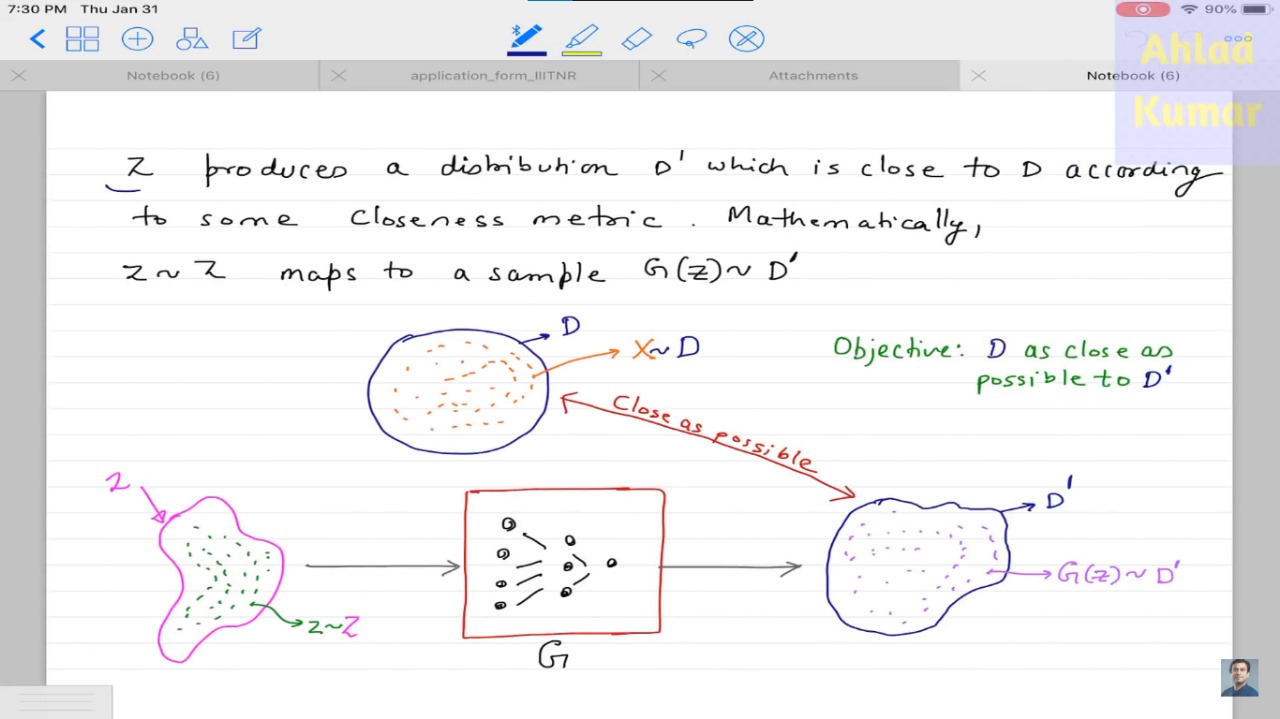 7:30 PM Thu Jan 31
90%
Ahlad
Kumar
Notebook (6)
application_form_IIITNR
Attachments
Notebook (6)
Z produces a distribution D' which is close to D according
to some closeness metric. Mathematically,
z ~ Z maps to a sample G(z) ~ D'
D
X ~ D
Objective: D as close as
possible to D'
Close as possible
Z
D'
z ~ Z
G(z) ~ D'
G